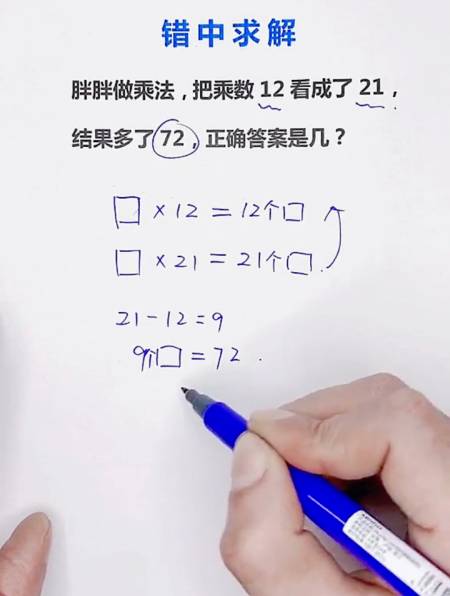 错中求解
胖胖做乘法，把乘数 12 看成了 21，
结果多了 72，正确答案是几？
□ × 12 = 12个□
□ × 21 = 21个□
21 - 12 = 9
9个□ = 72 .